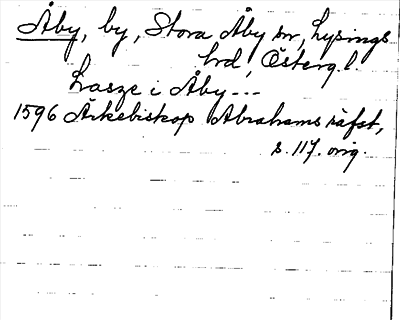 Åby, by, Stora Åby sn, Lysings
hrd, Österg.l.
Lasze i Åby ---
1596 Ärkebiskop Abrahams räfst,
s. 117. orig.